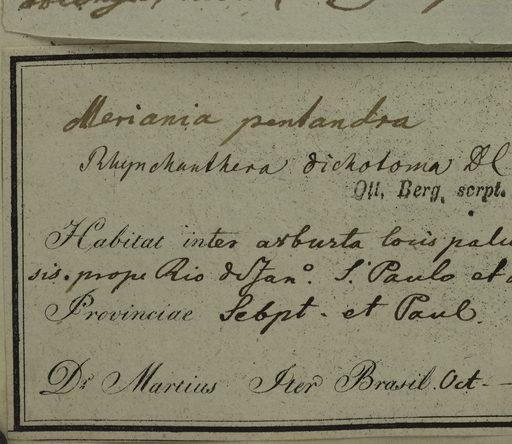 Meriania pentandra
Rhynchanthera dichotoma DC
Ott. Berg. scrpt.
Habitat inter arbusta locis palu
sis. prope Rio d Jano. S. Paulo et
Provinciae Sebpt. et Paul.
Dr. Martius Iter Brasil. Oct. -